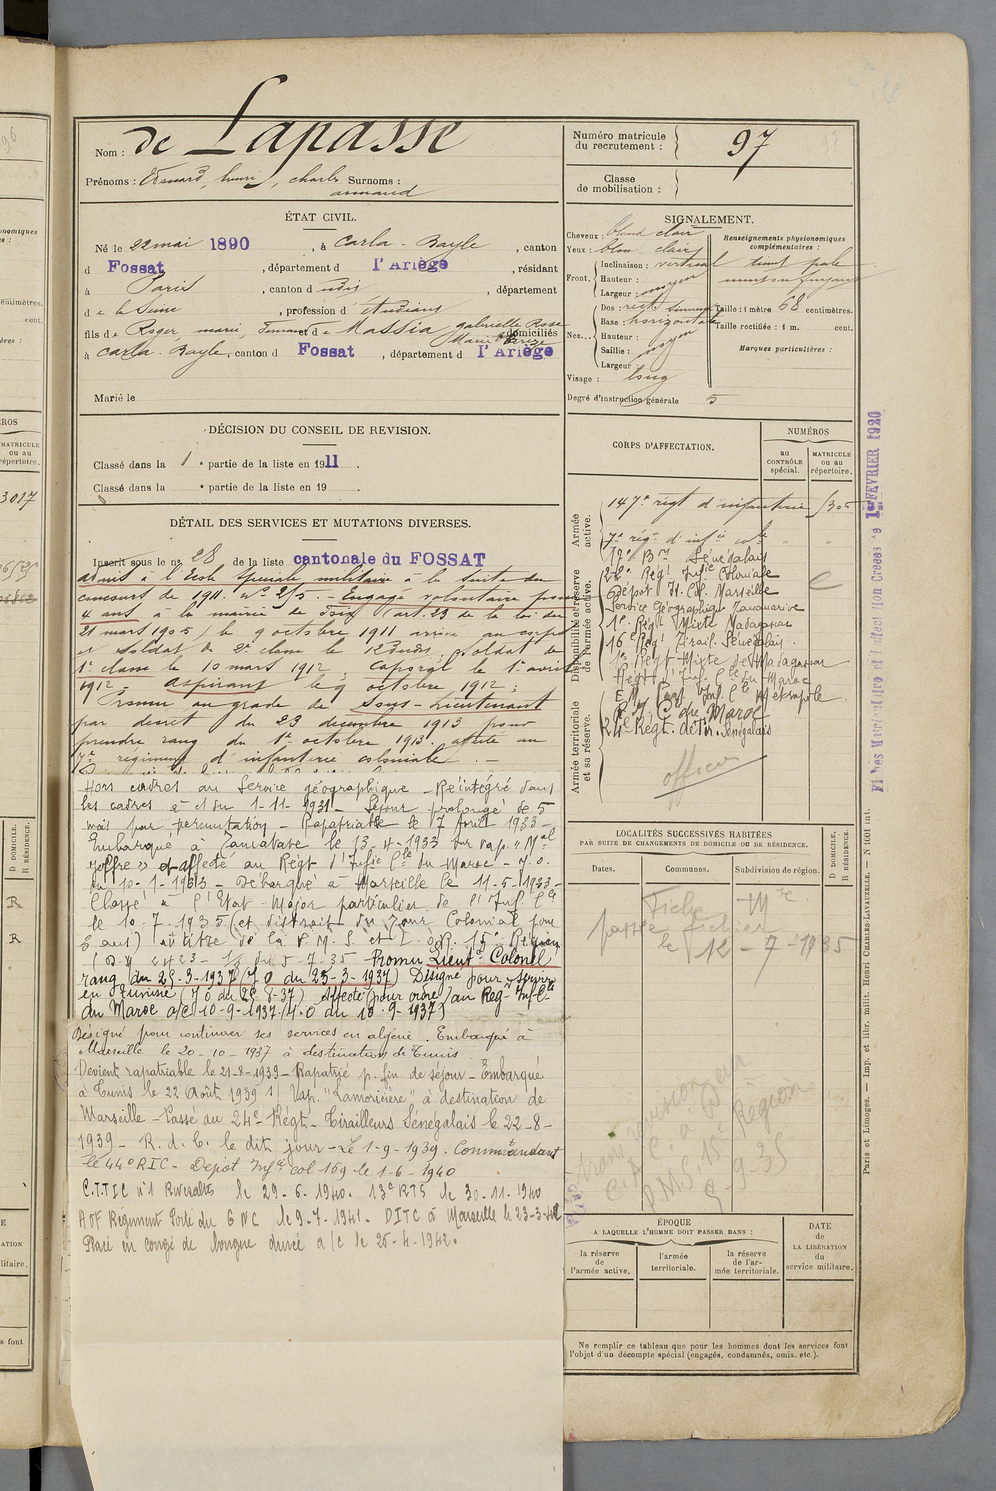 Nom : de Lapasse
Prénoms : Edouard, henry, charles Surnoms :
armand
ÉTAT CIVIL.
Né le 22 mai 1890 , à Carla-Bayle , canton
d Fossat , département d l'Ariège , résidant
à Paris , canton d , département
de la Seine , profession d'étudiant
fils de Roger, marie et de Massia gabrielle Rose
domiciliés
à Carla-Bayle, canton d Fossat , département d l'Ariège
Marié le
DÉCISION DU CONSEIL DE REVISION.
Classé dans la 1 partie de la liste en 1911.
Classé dans la partie de la liste en 19
DÉTAIL DES SERVICES ET MUTATIONS DIVERSES.
Inscrit sous le n° 28 de la liste cantonale du FOSSAT
admis à l'Ecole Spéciale militaire à la suite du
concours de 1911. N° 215. - Engagé volontaire pour
4 ans à la mairie de Foix (art. 23 de la loi du
21 mars 1905) le 9 octobre 1911 arrivé au corps
et soldat de 2e classe le Soldat de
1e classe le 10 mars 1912, Caporal le 1er avril
1912 - Aspirant le 9 octobre 1912 ;
Promu au grade de Sous-Lieutenant
par décret du 23 décembre 1913 pour
prendre rang du 1er octobre 1913. affecté au
7e régiment d'infanterie coloniale. -
Hors cadres au Service géographique - Réintégré dans
les cadres à c/ du 1-11-1931 - Séjour prolongé de 5
mois par permutation - Rapatriable le 7 Avril 1933 -
Embarqué à Tamatave le 13-4-1933 sur vap. "Mal
Joffre" et affecté au Régt d'Infie Cle du Maroc - J.O.
du 10-1-1933 - Débarqué à Marseille le 11-5-1933 -
Classé à l'Etat-Major particulier de l'Inf. Cle
le 10.7.1935 (et distrait du Tour Colonial pour
3 ans) au titre de la P.M.S. et I.O.R. 15e Région
Promu Lieutt Colonel
rang du 25-3-1937 (J.O du 25-3-1937) Désigné pour servir
en Tunisie (J.O du 25-8-37) Affecté (pour ordre) au Régt Inf Cle
du Maroc a/c 10-9-1937 (J.O du 10-9-1937)
Désigné pour continuer ses services en algérie. Embarqué à
Marseille le 20-10-1937 à destination de Tunis
Devient rapatriable le 21-8-1939 - Rapatrié p. fin de séjour - Embarqué
à Tunis le 22 Août 1939 s/ Vap. "Lamoricière" à destination de
Marseille - Passé au 24e Régt - Tirailleurs Sénégalais le 22-8-
1939 - R. d. C. le dit jour - Le 1-9-1939. Commandant
le 44e RIC - Dépôt Infie col 169 le 1-6-1940
C.T.T.I.C n°1 Rivesaltes le 29-6-1940. 13e RTS le 30-11-1940
AOF Régiment Porté du S N C le 9-7-1941. DITC à Marseille le 23-3-42
Placé en congé de longue durée a/c le 25-4-1942.
Numéro matricule
du recrutement : 97
Classe
de mobilisation :
SIGNALEMENT.
Cheveux : blond clair
Yeux : bleu clair
Front. Inclinaison : vertical
Hauteur :
Largeur : moyen
Nez... Dos : rect.
Base : horizontale
Hauteur :
Saillie : moyen
Largeur :
Visage : long
Renseignements physionomiques
complémentaires :
teint pale
menton fuyant
Taille : 1 mètre 68 centimètres.
Taille rectifiée : 1 m. cent.
Marques particulières :
Degré d'instruction générale 5
CORPS D'AFFECTATION.
NUMÉROS
au
CONTRÔLE
spécial.
MATRICULE
ou au
répertoire.
Armée
active.
147e régt d'infanterie 1305
7e rég. d'infie cole
Bon Sénégalais
Régt Infie Coloniale
Dépôt Is. Col. Marseille
Service Géographique Tananarive
1e Régt Mixte Madagascar
16e Rég Tirail. Sénégalais.
1e Régt Mixte de Madagascar
Régt d'Inf. Cle du Maroc
E.M. Part. Inf. Cle Métropole
R.I.C. du Maroc
24e Régt. de Tir. Sénégalais
officier
Disponibilité et réserve
de l'armée active.
Armée territoriale
et sa réserve.
LOCALITÉS SUCCESSIVES HABITÉES
PAR SUITE DE CHANGEMENTS DE DOMICILE OU DE RÉSIDENCE.
Dates.
Communes.
Subdivision de région.
D DOMICILE.
R RÉSIDENCE.
Fiche Mle
passée fichier
le 12-7-1935
P.M.S. 15e Région
5-9-35
ÉPOQUE
A LAQUELLE L'HOMME DOIT PASSER DANS :
la réserve
de
l'armée active.
l'armée
territoriale.
la réserve
de l'ar-
mée territoriale.
DATE
de
LA LIBÉRATION
du
service militaire.
Ne remplir ce tableau que pour les hommes dont les services font
l'objet d'un décompte spécial (engagés, condamnés, omis. etc.).
Paris et Limoges. — Imp. et libr. milit. Henri CHARLES-LAVAUZELLE. — N 1001 int.
Fiches Matriculaire et d'affection Créées le 1er FEVRIER 1920